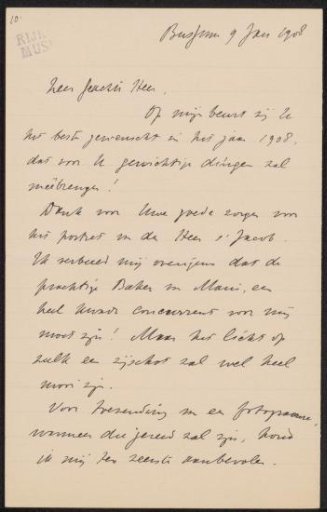 10
RIJKS
MUS
Bussum 9 Jan 1908
Zeer Geachte Heer,
Op mijn beurt zij U
het best gewenscht in het jaar 1908,
dat voor U gewichtige dingen zal
meêbrengen!
Dank voor Uwe goede zorgen voor
het portret van den Heer s' Jacob.
Ik verbeeld mij overigens dat de
prachtige Baker van Maris, een
heel kwade concurrent voor mij
moet zijn! Maar het licht op
zulk een zijschot zal wel heel
mooi zijn.
Voor toezending van een fotogravure,
wanneer die gereed zal zijn, houd
ik mij ten zeerste aanbevolen.